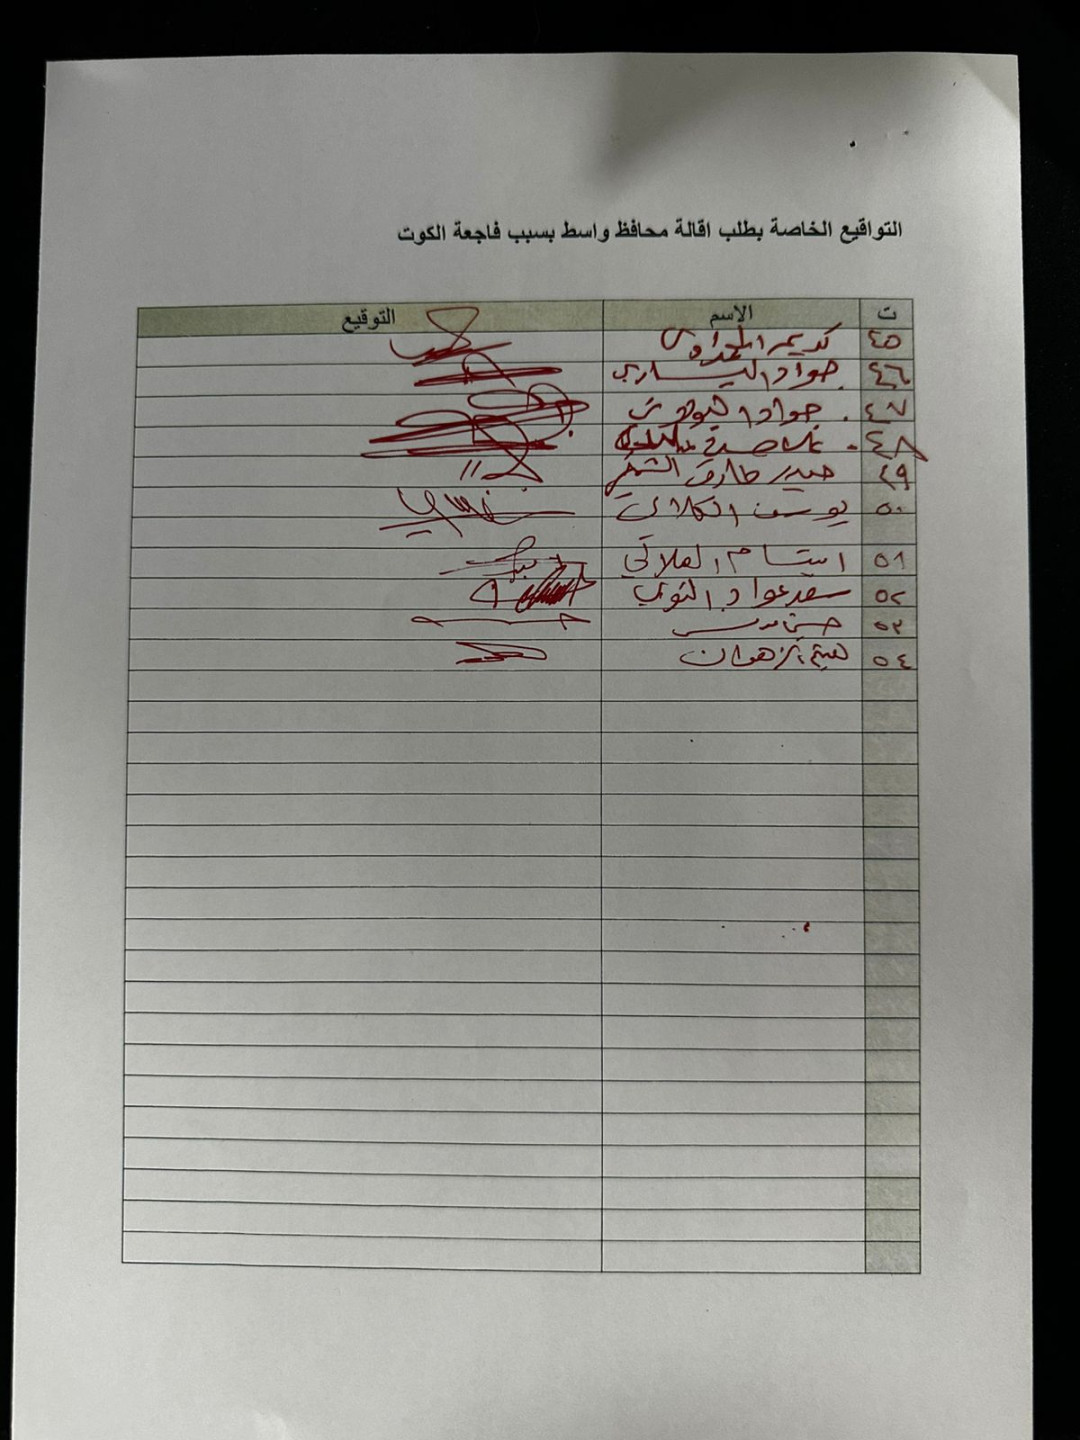 التواقيع الخاصة بطلب اقالة محافظ واسط بسبب فاجعة الكوت
ت الاسم التوقيع
٤٥ كريم
٤٦ جواد اليساري
٤٧ جواد
٤٨
٤٩ حيدر طارق
٥٠ يوسف الكلابي
٥١ ابتسام الهلالي
٥٢ سعد عواد التوبي
٥٣ حسين
٥٤ هيثم الزهوان